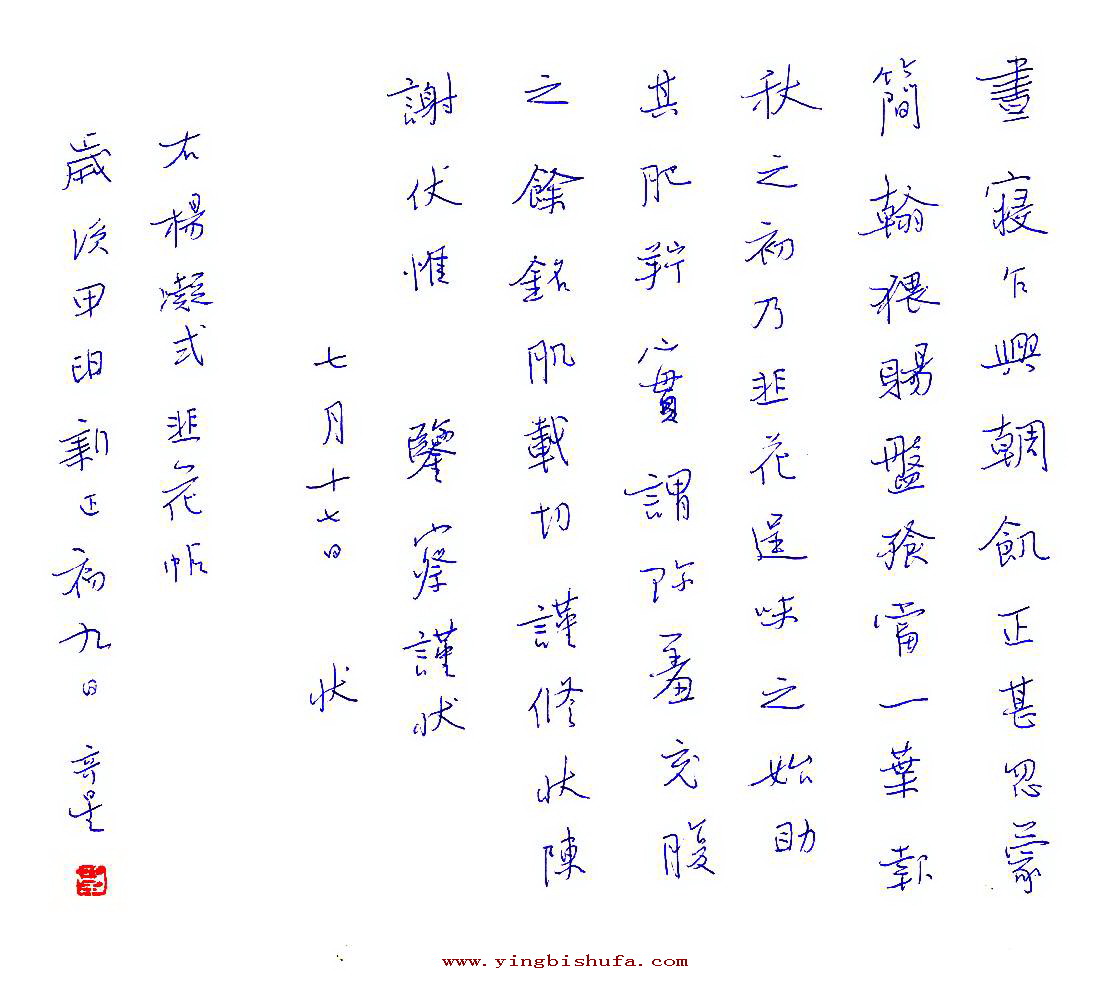 晝寢乍興輖飢正甚忽蒙
簡翰猥賜盤飱當一葉報
秋之初乃韭花逞味之始助
其肥羜實謂珎羞充腹
之餘銘肌載切謹修狀陳
謝伏惟鑒察謹狀
七月十七日狀
右楊凝式韭花帖
歲次甲申新正初九日
www.yingbishufa.com